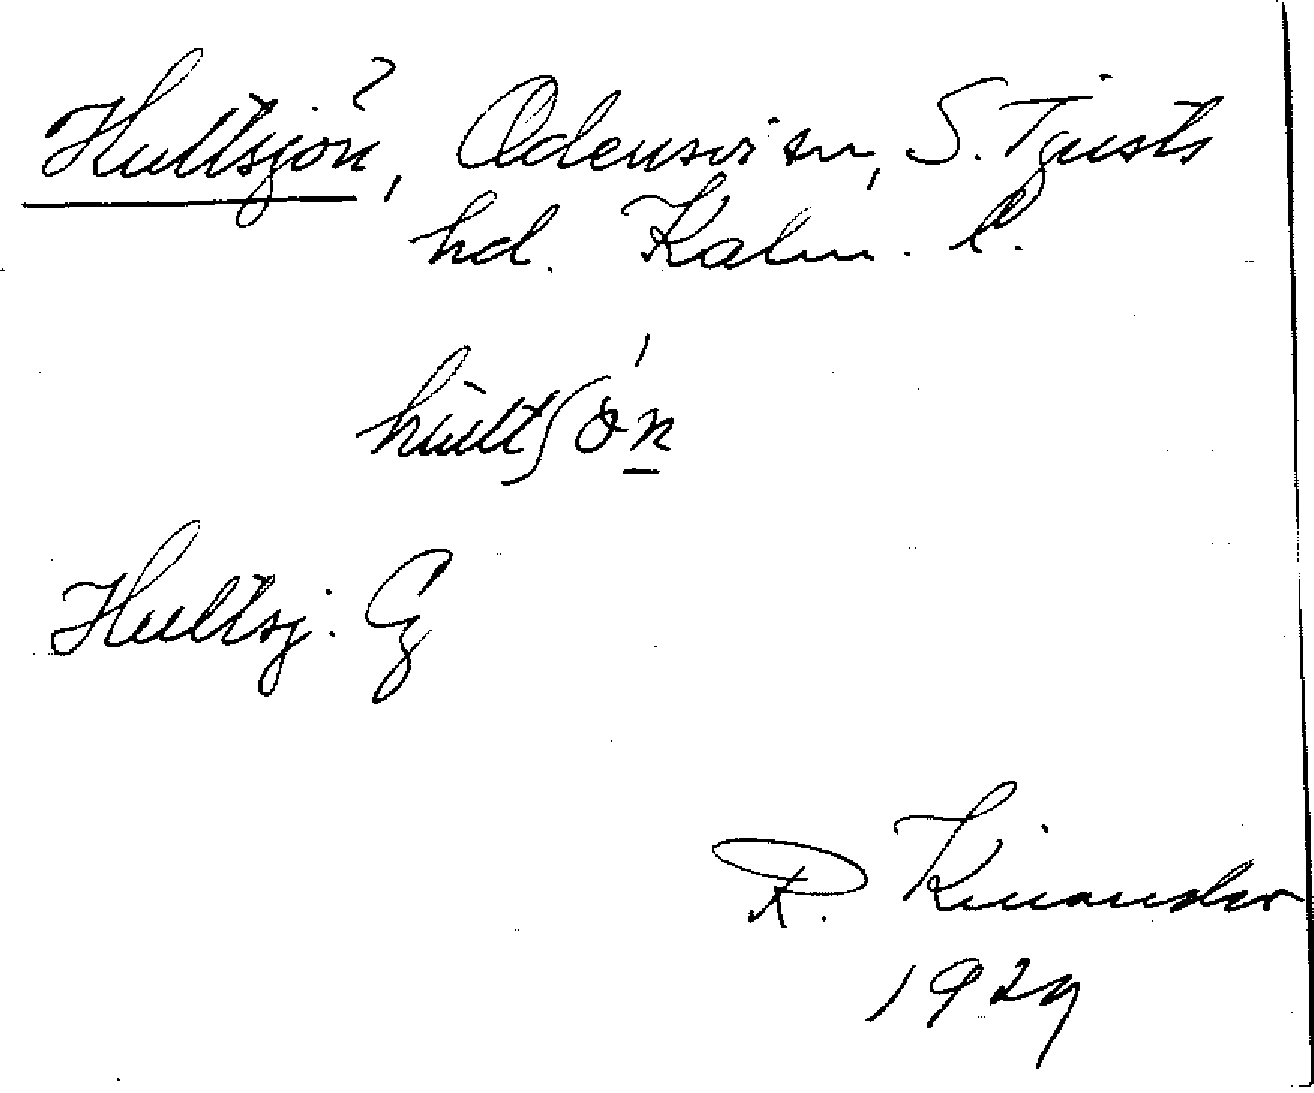 Hultsjön, Odensvi sn, S. Tjusts
hd. Kalm. l.
Hultsj. G
R. Kinander
1929